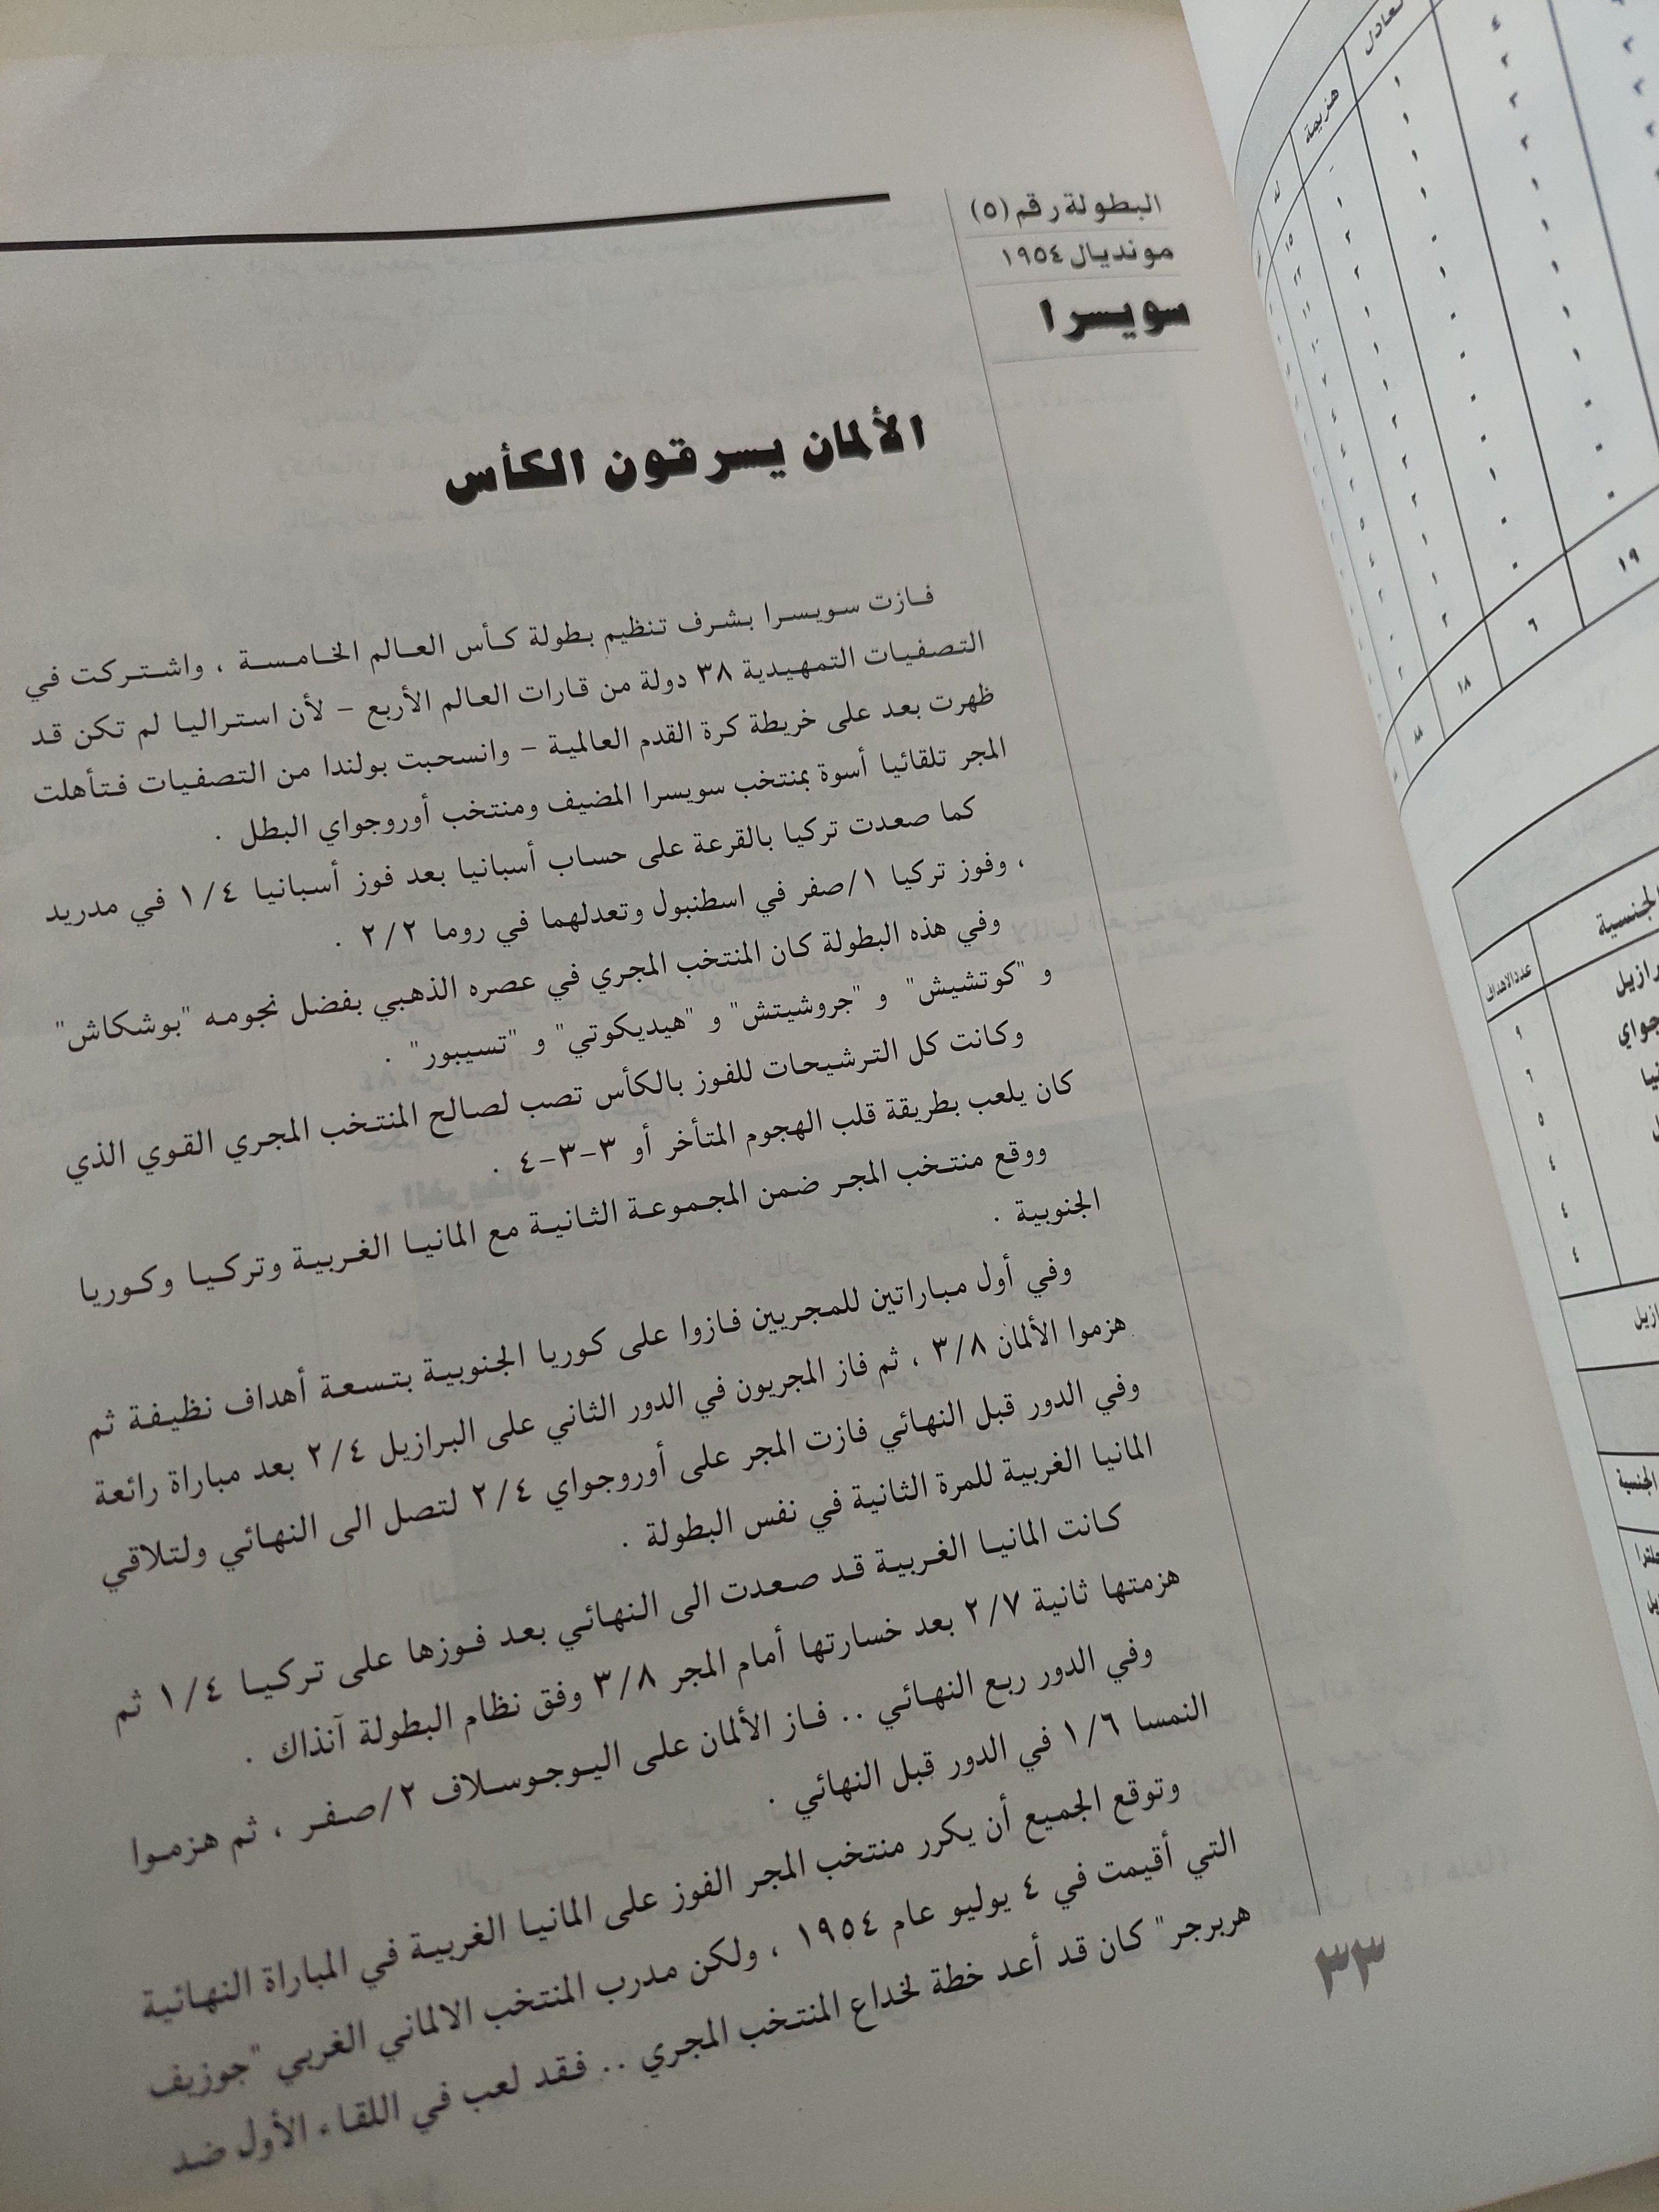 البطولة رقم (٥)
مونديال ١٩٥٤
سويسرا
الألمان يسرقون الكأس
فازت سويسرا بشرف تنظيم بطولة كأس العالم الخامسة ، واشتركت في
التصفيات التمهيدية ٣٨ دولة من قارات العالم الأربع – لأن استراليا لم تكن قد
ظهرت بعد على خريطة كرة القدم العالمية – وانسحبت بولندا من التصفيات فتأهلت
المجر تلقائيا أسوة بمنتخب سويسرا المضيف ومنتخب أوروجواي البطل .
كما صعدت تركيا بالقرعة على حساب أسبانيا بعد فوز أسبانيا ١/٤ في مدريد
، وفوز تركيا ١/صفر في اسطنبول وتعدلهما في روما ٢/٢ .
وفي هذه البطولة كان المنتخب المجري في عصره الذهبي بفضل نجومه "بوشكاش"
و "كوتشيش" و "جروشيتش" و "هيديكوتي" و "تسيبور" .
وكانت كل الترشيحات للفوز بالكأس تصب لصالح المنتخب المجري القوي الذي
كان يلعب بطريقة قلب الهجوم المتأخر أو ٣-٣-٤ .
ووقع منتخب المجر ضمن المجموعة الثانية مع المانيا الغربية وتركيا وكوريا
الجنوبية .
وفي أول مباراتين للمجريين فازوا على كوريا الجنوبية بتسعة أهداف نظيفة ثم
هزموا الألمان ٣/٨ ، ثم فاز المجريون في الدور الثاني على البرازيل ٢/٤ بعد مباراة رائعة
وفي الدور قبل النهائي فازت المجر على أوروجواي ٢/٤ لتصل الى النهائي ولتلاقي
المانيا الغربية للمرة الثانية في نفس البطولة .
كانت المانيا الغربية قد صعدت الى النهائي بعد فوزها على تركيا ١/٤ ثم
هزمتها ثانية ٢/٧ بعد خسارتها أمام المجر ٣/٨ وفق نظام البطولة آنذاك .
وفي الدور ربع النهائي .. فاز الألمان على اليوجوسلاف ٢/صفر ، ثم هزموا
النمسا ١/٦ في الدور قبل النهائي .
وتوقع الجميع أن يكرر منتخب المجر الفوز على المانيا الغربية في المباراة النهائية
التي أقيمت في ٤ يوليو عام ١٩٥٤ ، ولكن مدرب المنتخب الالماني الغربي "جوزيف
هربرجر" كان قد أعد خطة لخداع المنتخب المجري .. فقد لعب في اللقاء الأول ضد
٣٣
تعادل
هزيمة
١٩
٦
١٨
الجنسية
عدد الاهداف
٩
٦
٥
٤
٤
٤
الجنسية